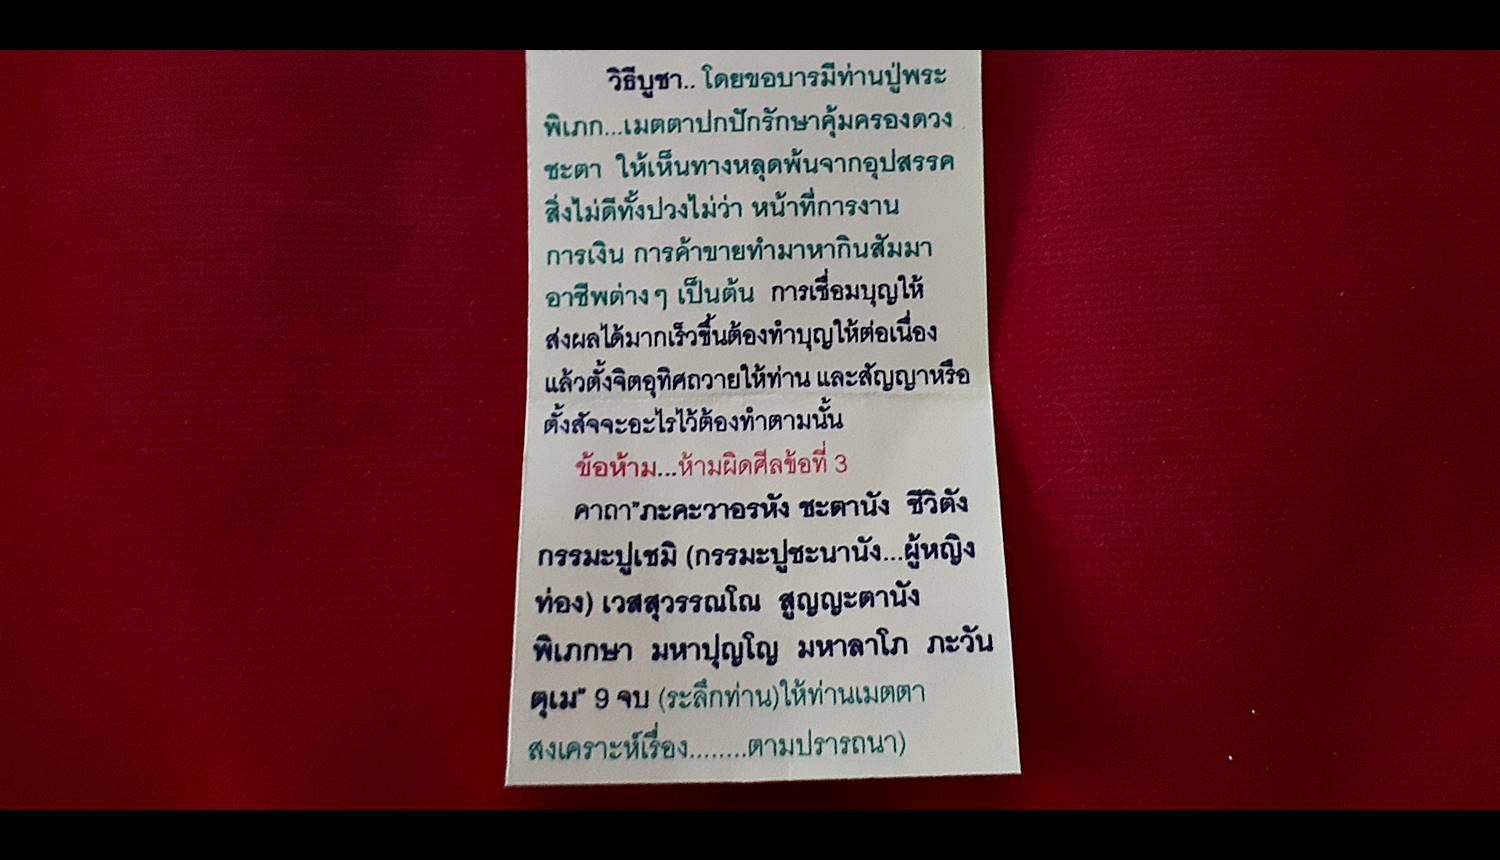 วิธีบูชา.. โดยขอบารมีท่านปู่พระ
พิเภก...เมตตาปกปักรักษาคุ้มครองดวง
ชะตา ให้เห็นทางหลุดพ้นจากอุปสรรค
สิ่งไม่ดีทั้งปวงไม่ว่า หน้าที่การงาน
การเงิน การค้าขายทำมาหากินสัมมา
อาชีพต่างๆ เป็นต้น การเชื่อมบุญให้
ส่งผลได้มากเร็วขึ้นต้องทำบุญให้ต่อเนื่อง
แล้วตั้งจิตอุทิศถวายให้ท่าน และสัญญาหรือ
ตั้งสัจจะอะไรไว้ต้องทำตามนั้น
ข้อห้าม...ห้ามผิดศีลข้อที่ 3
คาถา"ภะคะวาอรหัง ชะตานัง ชีวิตัง
กรรมะปูเชมิ (กรรมะปูชะนานัง...ผู้หญิง
ท่อง) เวสสุวรรณโณ สูญญะตานัง
พิเภกษา มหาปุญโญ มหาลาโภ ภะวัน
ตุเม" 9 จบ (ระลึกท่าน)ให้ท่านเมตตา
สงเคราะห์เรื่อง........ตามปรารถนา)